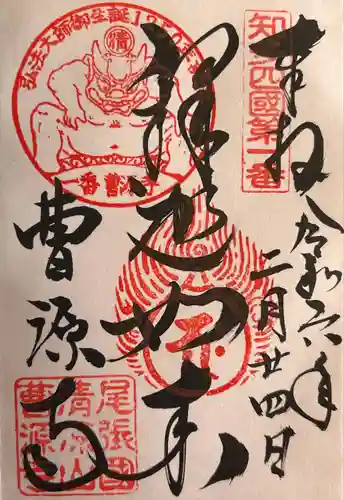 奉拝
知多四國第一番
令和六年
二月廿四日
釋迦如来
弘法大師御生誕1250年
清
一番 曹源寺
曹源寺
尾張國
清涼山
曹源寺